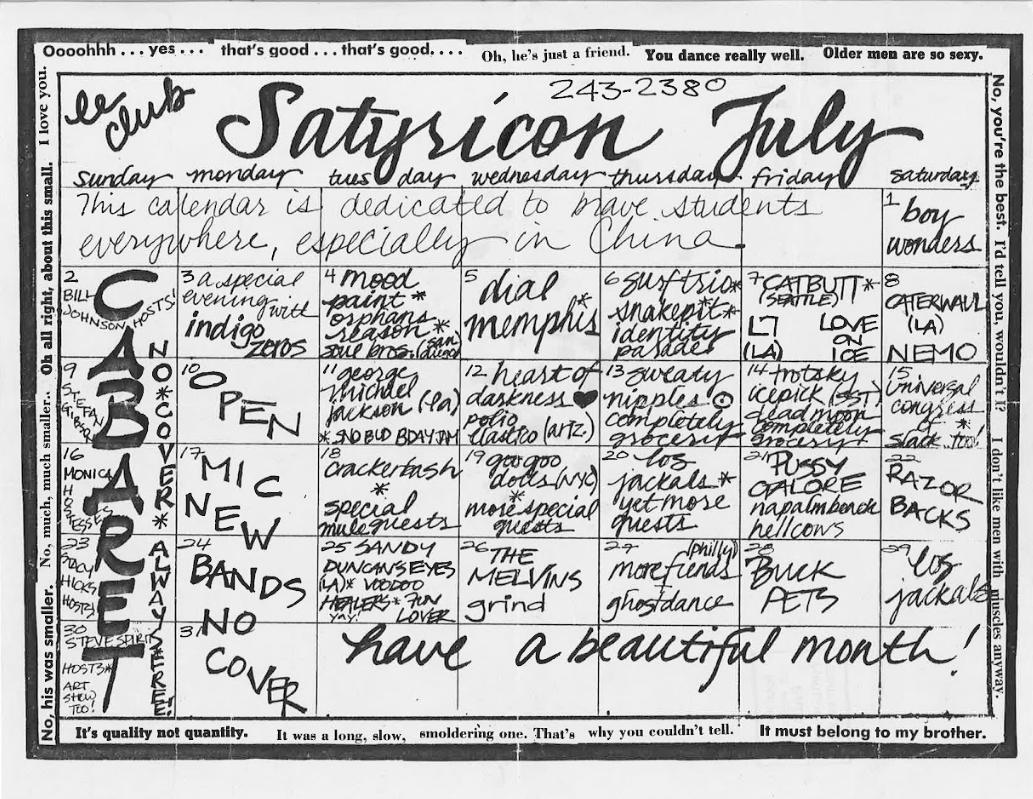 Oooohhh . . . yes . . . that's good . . . that's good. . . . Oh, he's just a friend. You dance really well. Older men are so sexy.
No, his was smaller. No, much, much smaller.. Oh all right, about this small. I love you.
No, you're the best. I'd tell you, wouldn't I? I don't like men with muscles anyway.
club
243-2380
Satyricon July
sunday monday tues day wednesday thursday friday saturday
This calendar is dedicated to brave students
everywhere, especially in China.
1 boy
wonders
2
BILL
JOHNSON HOSTS!
CABARET
NO*COVER*
ALWAYS*FREE!
3 a special
evening with
indigo
zeros
4 mood
paint *
orphans
season *
soul bros. (san diego)
5
dial
memphis*
6 surf trio*
snakepit*
identity
parade
7 CATBUTT*
(SEATTLE)
L7
(LA)
LOVE
ON
ICE
8
CATERWAUL
(LA)
NEMO
9
STEFAN
10
OPEN
11 george
michael
jackson (-la)
* SNO BUD BDAY JAM
12 heart of
darkness ♥
polio
elastico (ARIZ.)
13 sweaty
nipples
completely
grocery
14 trotsky
icepick (SST)
dead moon
completely
grocery
15
Universal
congress
of
slack too!
16
MONICA
HOSTESSES
17
MIC
NEW
18
crackerbash
*
special
mule guests
19 goo goo
dolls (NYC)
*
more special
guests
20 los
jackals *
yet more
guests
21 PUSSY
GALORE
napalm beach
hellcows
22
RAZOR
BACKS
23
HICKS
HOSTS!
24
BANDS
25 SANDY
DUNCANS EYES
(LA)* VOODOO
HEALERS* FUN
YAY! LOVER
26 THE
MELVINS
grind
27 (philly)
more fiends
+
ghostdance
28
BUCK
PETS
29
los
jackals
30
STEVE SPIRIT
HOSTS*
ART
SHOW
TOO!
31
NO
COVER
have a beautiful month!
It's quality not quantity. It was a long, slow, smoldering one. That's why you couldn't tell. It must belong to my brother.